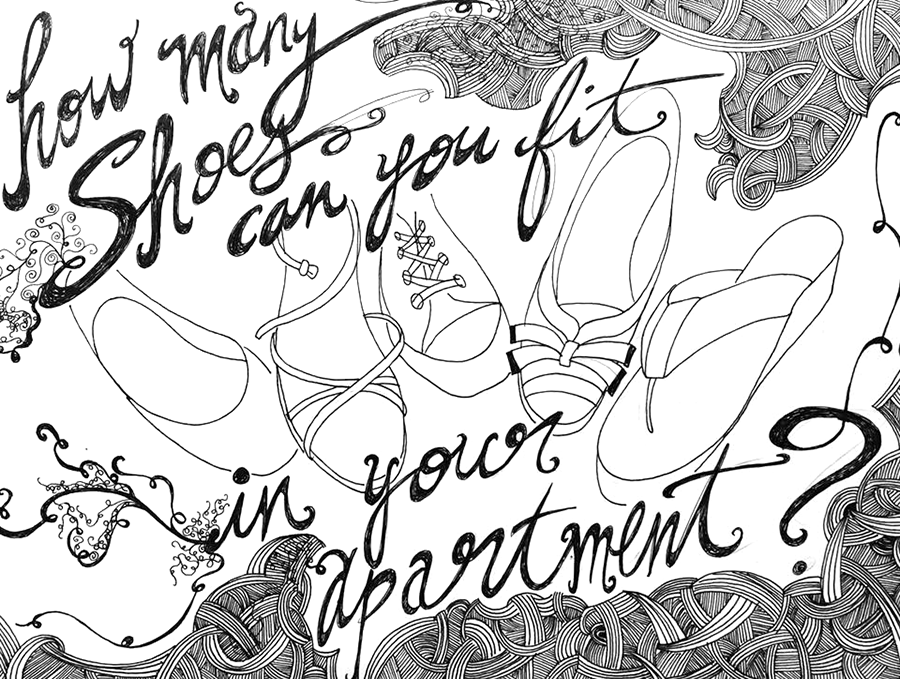 how many
Shoes
can you fit
in your
apartment?